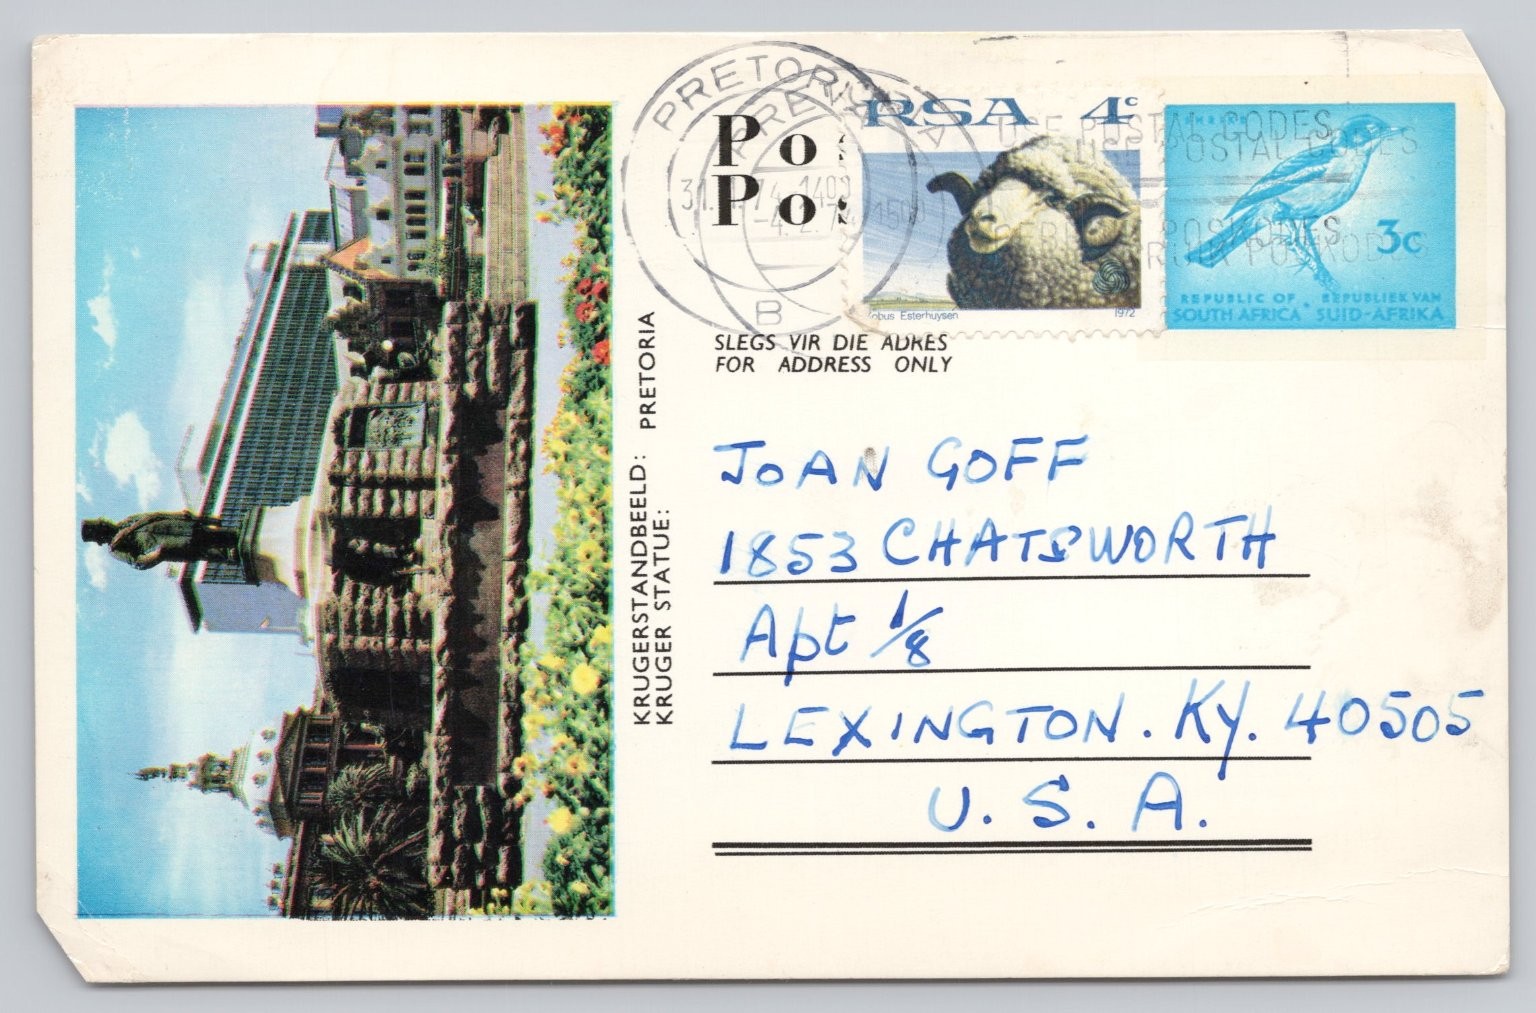 PRETORIA
PRETORIA
31.1.74-1400
-4.2.74-1500
B
Po
Po
RSA 4c
Kobus Esterhuysen
1972
USE POSTAL CODES
USE POSTAL CODES
POSKODES
3c
REPUBLIC OF SOUTH AFRICA
REPUBLIEK VAN SUID-AFRIKA
SLEGS VIR DIE ADRES
FOR ADDRESS ONLY
KRUGERSTANDBEELD: PRETORIA
KRUGER STATUE:
JOAN GOFF
1853 CHATSWORTH
Apt 1/8
LEXINGTON. KY. 40505
U. S. A.